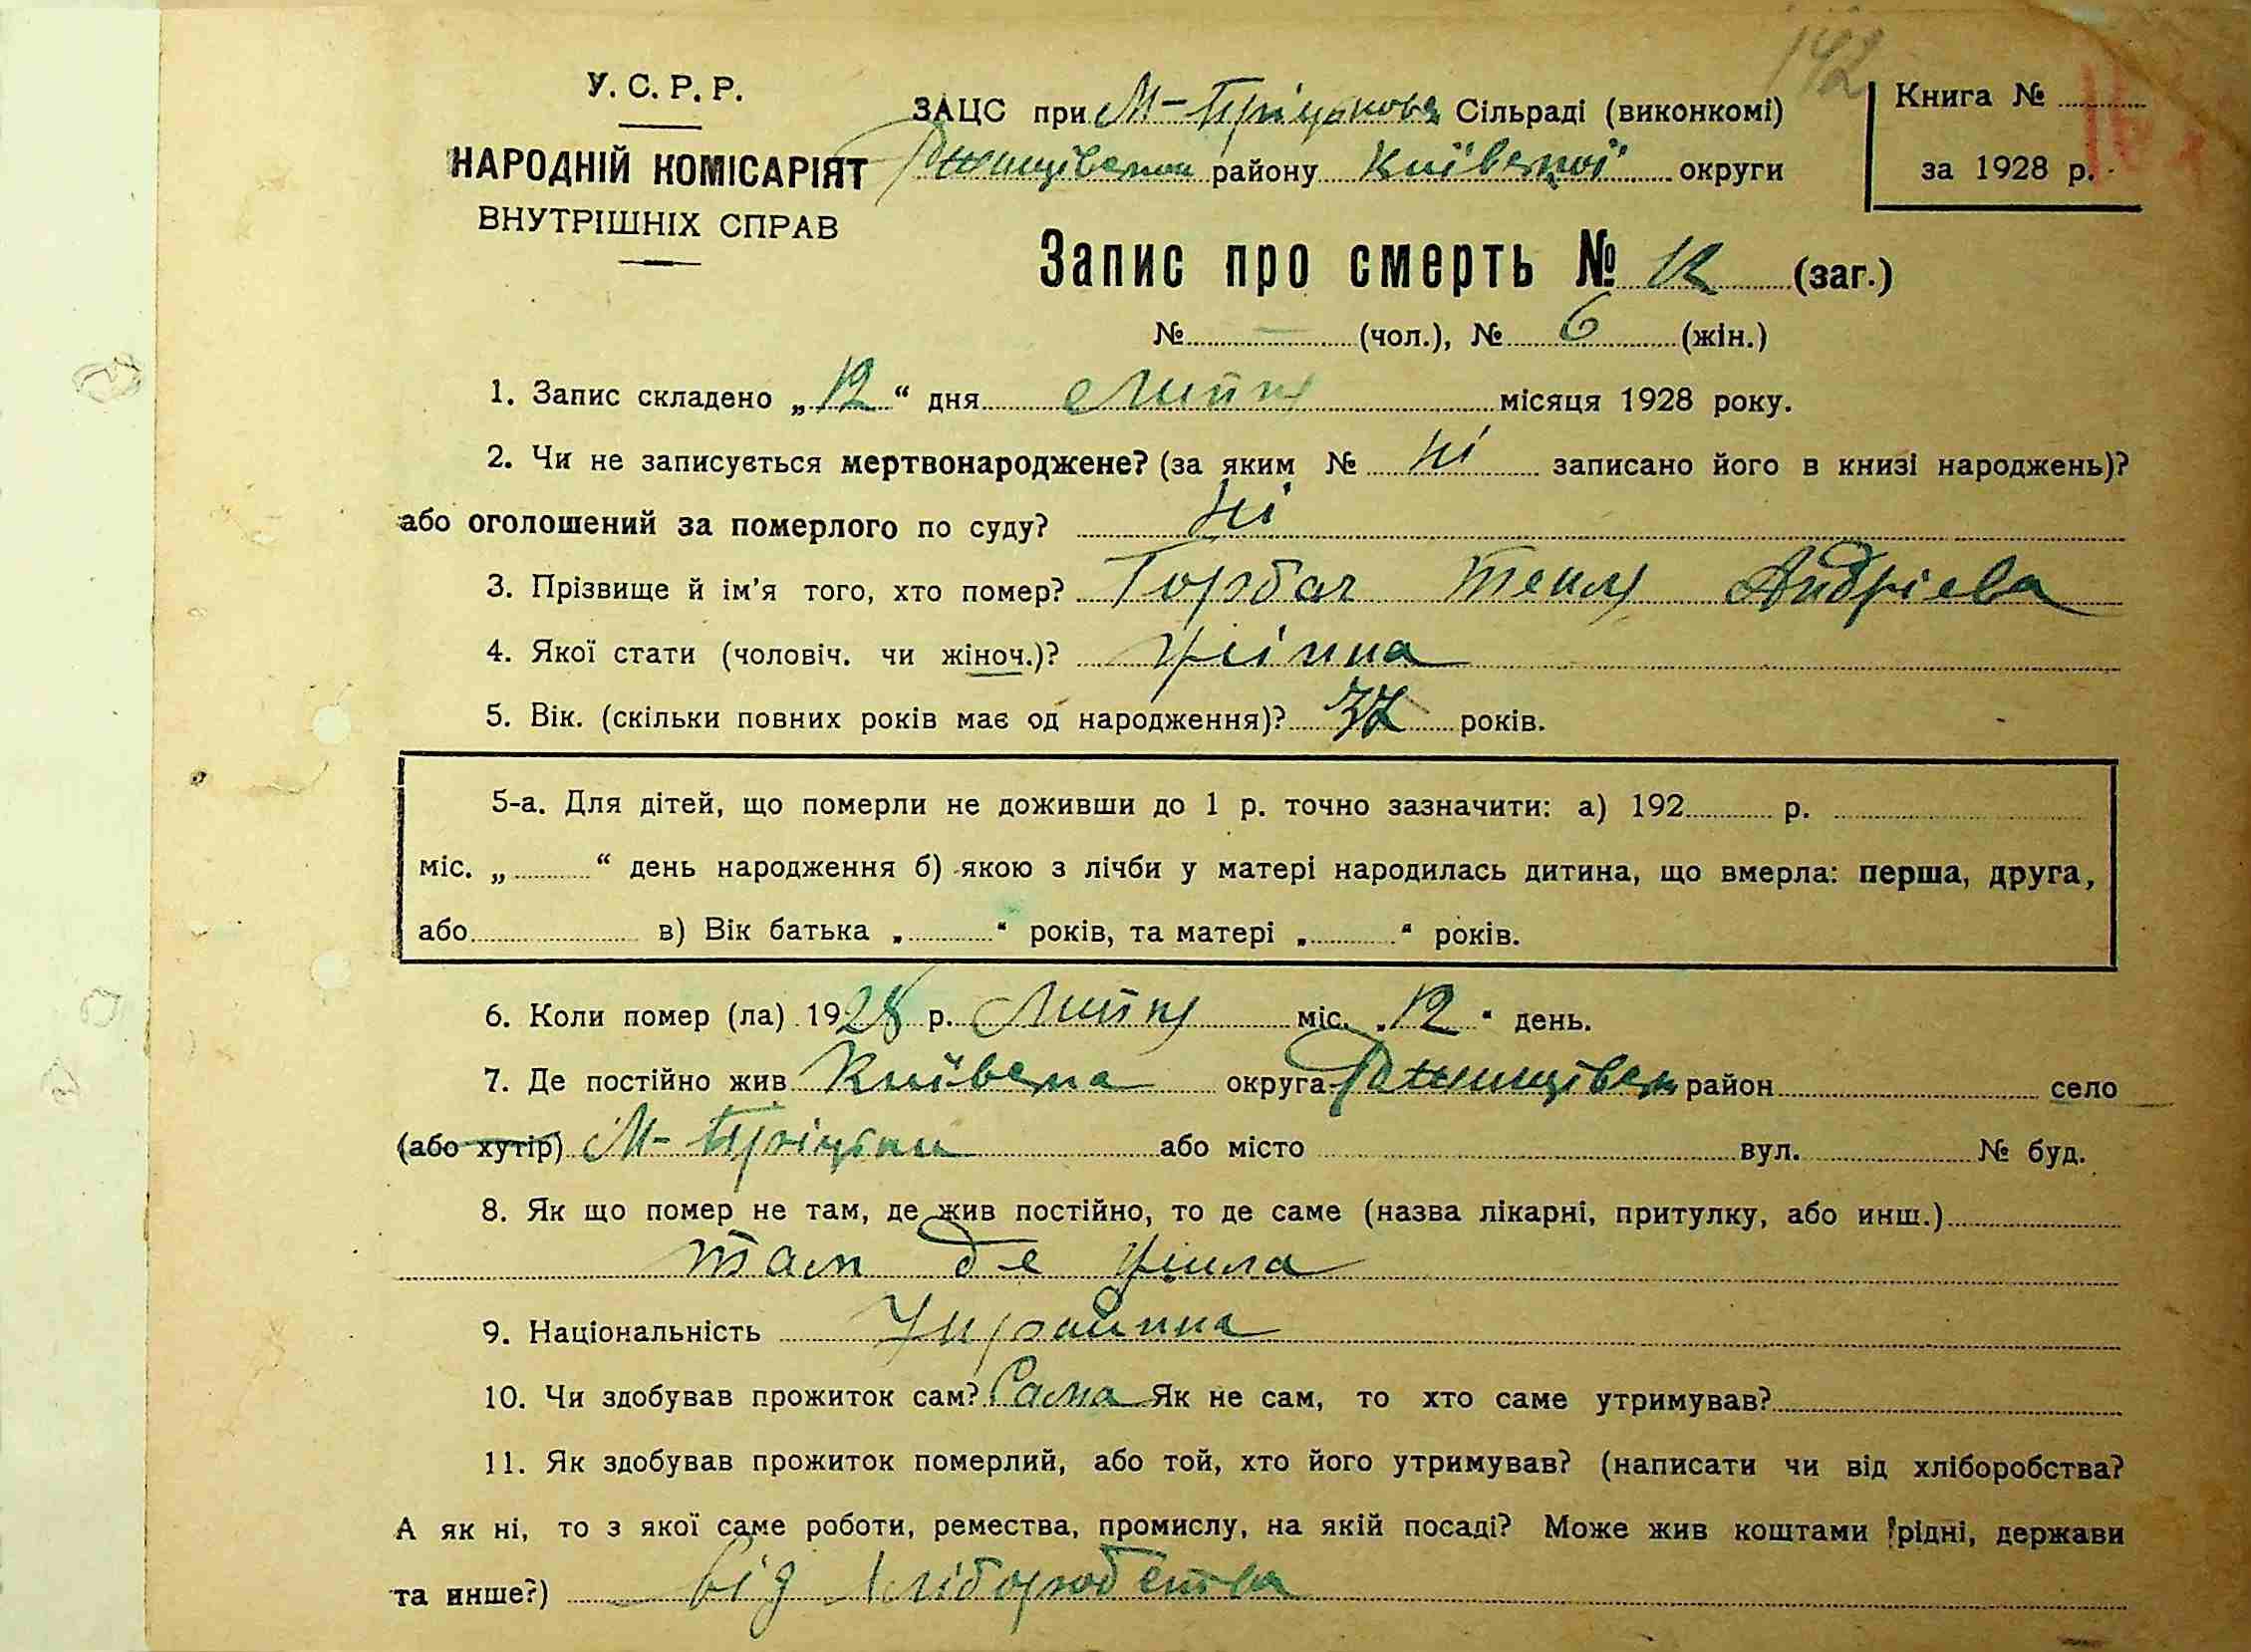 142
У. С. Р. Р.
НАРОДНІЙ КОМІСАРІЯТ
ВНУТРІШНІХ СПРАВ
ЗАЦС при М-Пріцьковск Сільраді (виконкомі)
Ржищівськом району Київської округи
Книга №
за 1928 р.
Запис про смерть № 12 (заг.)
№ — (чол.), № 6 (жін.)
1. Запис складено „ 12 “ дня Липня місяця 1928 року.
2. Чи не записується мертвонароджене? (за яким № ні записано його в книзі народжень)?
або оголошений за померлого по суду? ні
3. Прізвище й ім'я того, хто помер? Горбач Текля Андрієва
4. Якої стати (чоловіч. чи жіноч.)? жіноча
5. Вік. (скільки повних років має од народження)? 37 років.
5-а. Для дітей, що померли не доживши до 1 р. точно зазначити: а) 192 р.
міс. „ “ день народження б) якою з лічби у матері народилась дитина, що вмерла: перша, друга,
або в) Вік батька „ “ років, та матері „ “ років.
6. Коли помер (ла) 1928 р. Липня міс. „ 12 “ день.
7. Де постійно жив Київська округа Ржищівськ район село
(або хутір) М-Пріцьки або місто вул. № буд.
8. Як що помер не там, де жив постійно, то де саме (назва лікарні, притулку, або инш.)
там де жила
9. Національність Українка
10. Чи здобував прожиток сам? Сама Як не сам, то хто саме утримував?
11. Як здобував прожиток померлий, або той, хто його утримував? (написати чи від хліборобства?
А як ні, то з якої саме роботи, ремества, промислу, на якій посаді? Може жив коштами рідні, держави
та инше?) від хліборобства